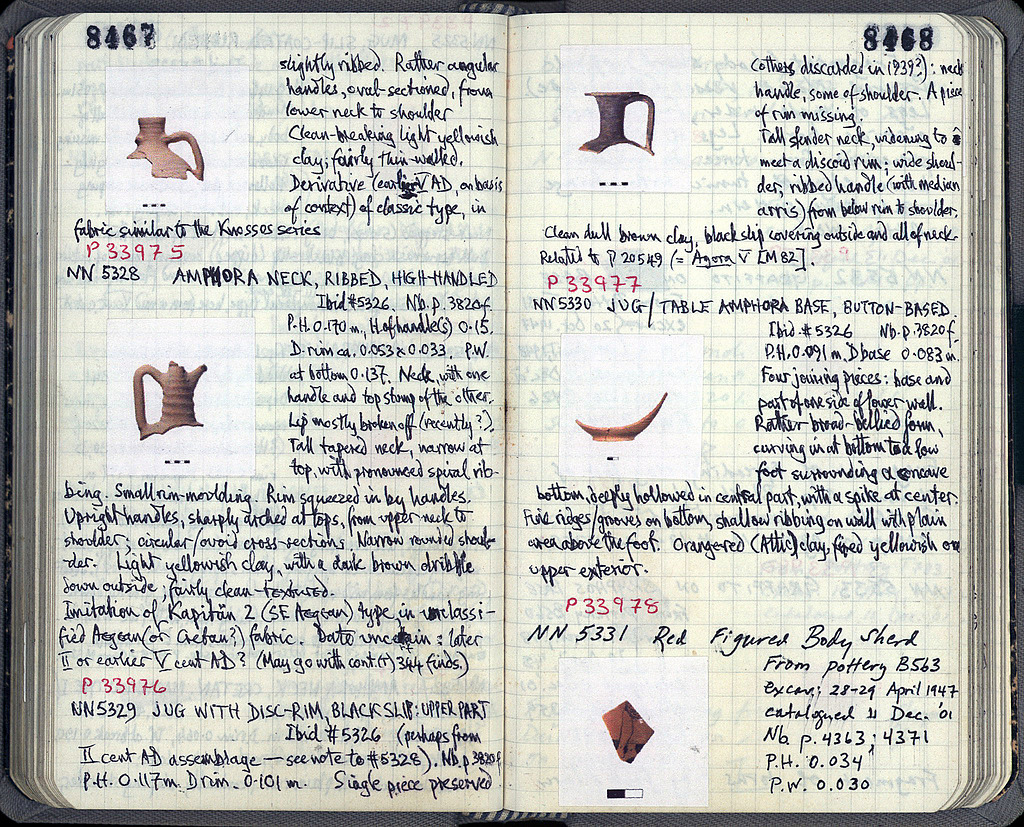 8467
slightly ribbed. Rather angular
handles, oval-sectioned, from
lower neck to shoulder
Clean-breaking light yellowish
clay; fairly thin-walled.
Derivative (earlier V AD, on basis
of context) of classic type, in
fabric similar to the Knossos series
P 33975
NN 5328 AMPHORA NECK, RIBBED, HIGH-HANDLED
Ibid #5326. Nb. p. 3820f.
P.H. 0.170 m, H of handle(s) 0.15.
D. rim ca. 0.053 x 0.033. P.W.
at bottom 0.137. Neck, with one
handle and top stump of the other.
Lip mostly broken off (recently?).
Tall tapered neck, narrow at
top, with pronounced spiral rib-
bing. Small rim-moulding. Rim squeezed in by handles.
Upright handles, sharply arched at tops, from upper neck to
shoulder; circular/ovoid cross-sections. Narrow rounded shoul-
der. Light yellowish clay, with a dark brown dribble
down outside; fairly clean-textured.
Imitation of Kapitän 2 (SE Aegean) type, in unclassi-
fied Aegean (or Cretan?) fabric. Date uncertain: later
II or earlier V cent AD? (May go with cont. (+) 344 finds.)
P 33976
NN 5329 JUG WITH DISC-RIM, BLACK SLIP: UPPER PART
Ibid #5326 (perhaps from
II cent AD assemblage — see note to #5328). Nb. p. 3820f
P.H. 0.117 m. D rim. 0.101 m. Single piece preserved
8468
(others discarded in 1939?): neck
handle, some of shoulder. A piece
of rim missing.
Tall slender neck, widening to
meet a discoid rim; wide shoul-
der, ribbed handle (with median
arris) from below rim to shoulder.
Clean dull brown clay, black slip covering outside and all of neck.
Related to P 20549 (= Agora V [M 82].
P 33977
NN 5330 JUG/TABLE AMPHORA BASE, BUTTON-BASED.
Ibid. #5326 Nb. p. 3820f.
P.H. 0.091 m. D base 0.083 m.
Four joining pieces: base and
part of one side of lower wall.
Rather broad-bellied form,
curving in at bottom to a low
foot surrounding a concave
bottom, deeply hollowed in central part, with a spike at center.
Fine ridges/grooves on bottom, shallow ribbing on wall with plain
area above the foot. Orangered (Attic) clay, fired yellowish on
upper exterior.
P 33978
NN 5331 Red Figured Body Sherd
From pottery B563
excav; 28-29 April 1947
catalogued 11 Dec. '01
Nb. p. 4363; 4371
P.H. 0.034
P.W. 0.030